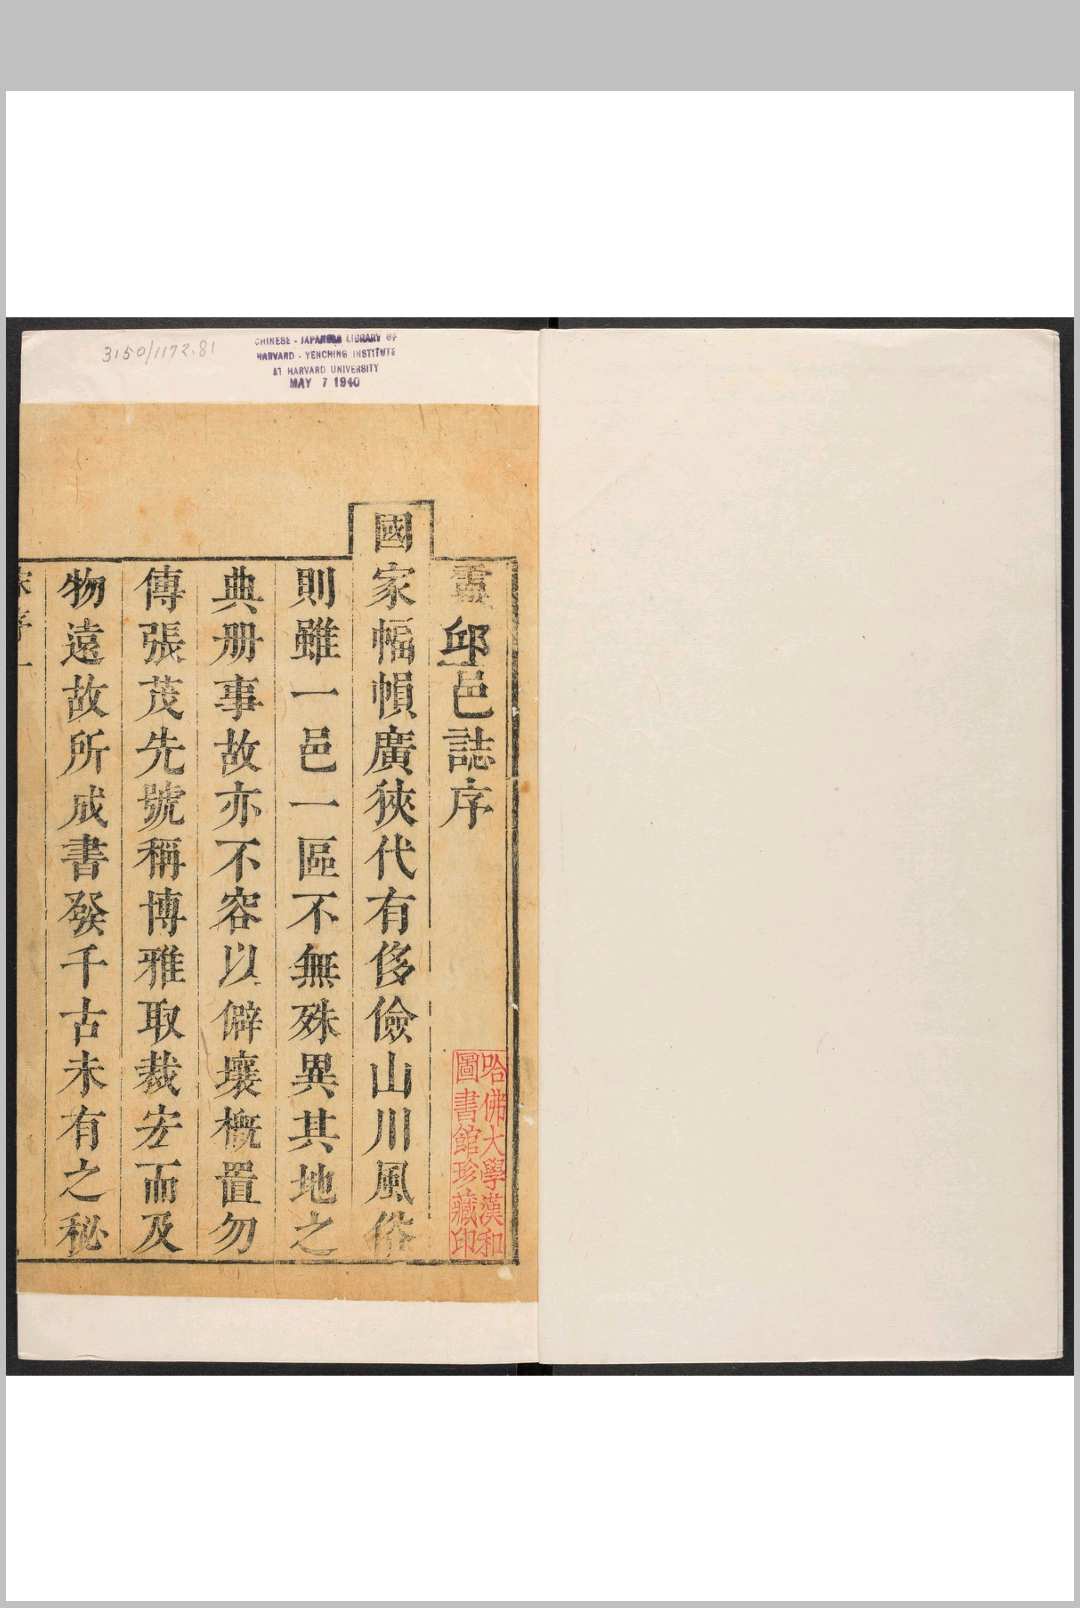 3150/1172.81
CHINESE - JAPANESE LIBRARY OF
HARVARD - YENCHING INSTITUTE
AT HARVARD UNIVERSITY
MAY 7 1940
靈邱邑誌序
國家幅幀廣狹代有侈儉山川風俗
則雖一邑一區不無殊異其地之
典册事故亦不容以僻壤槪置勿
傳張茂先號稱博雅取裁宏而及
物遠故所成書發千古未有之秘
哈佛大學漢和
圖書館珍藏印